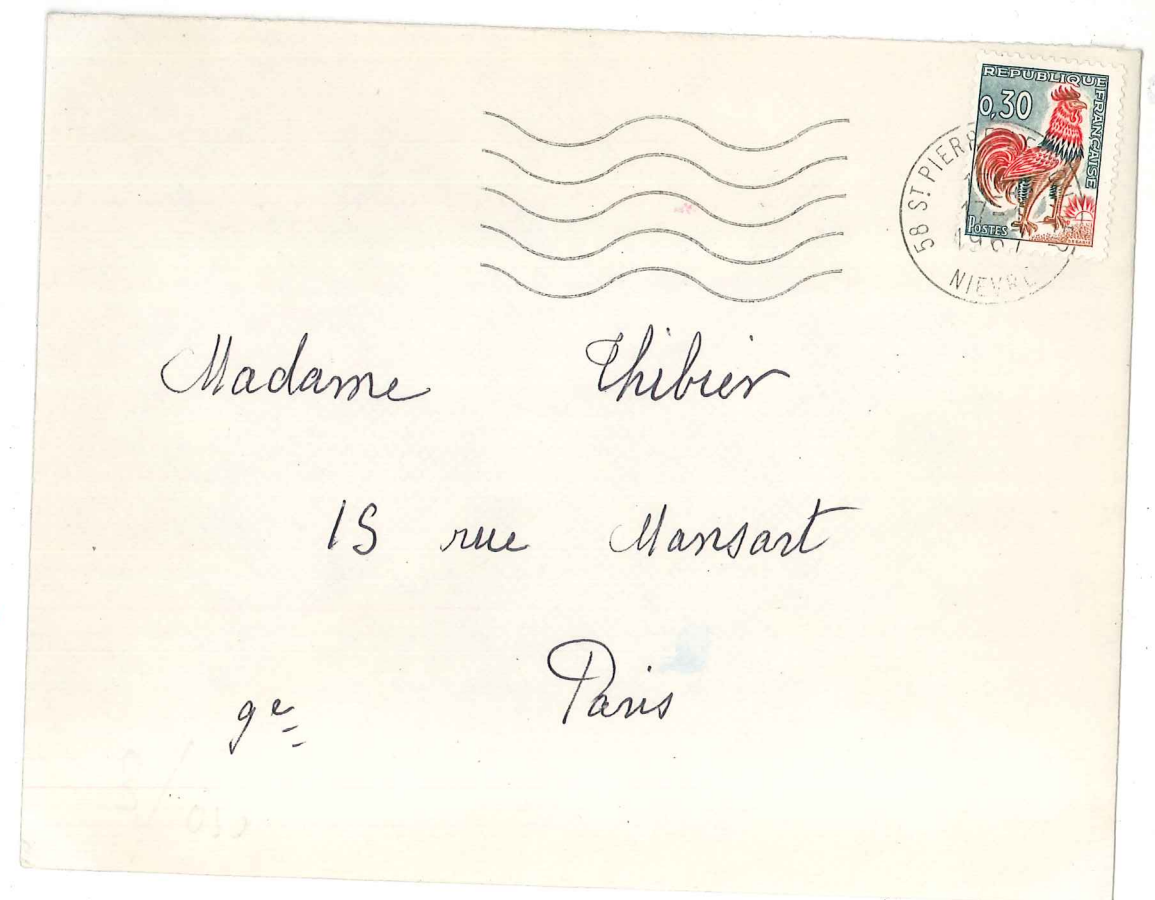 REPUBLIQUE FRANCAISE
0,30
POSTES
58 ST PIERRE
17
196
NIEVRE
Madame Thibier
15 rue Mansart
9e Paris